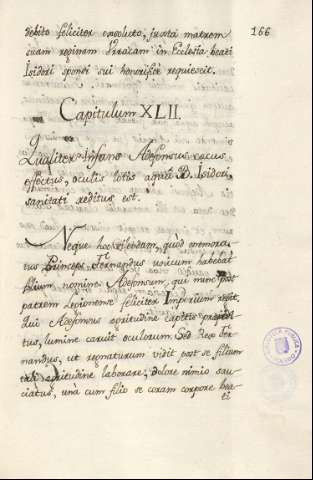 debito feliciter exsoluto, juxta matrem
suam reginam Urracam in Ecclesia beati
Isidori sponsi sui honorifice requiescit.
166
Capitulum XLII.
Qualiter Infans Adefonsus cæcus
effectus, oculis lotis aqua B. Isidori,
sanitati reditus est.
Neque hoc silendum, quod memora-
tus Princeps Fernandus unicum habebat
filium nomine Adefonsum, qui nunc post
patrem Legionense feliciter Imperium regit.
Qui Adefonsus egritudine capitis
lumine caruit oculorum. Sed Rex Fer-
nandus, ut regnaturum vidit post se filium
tali egritudine laborare, dolore nimio sau-
ciatus, una cum filio se coram corpore bea-
ti